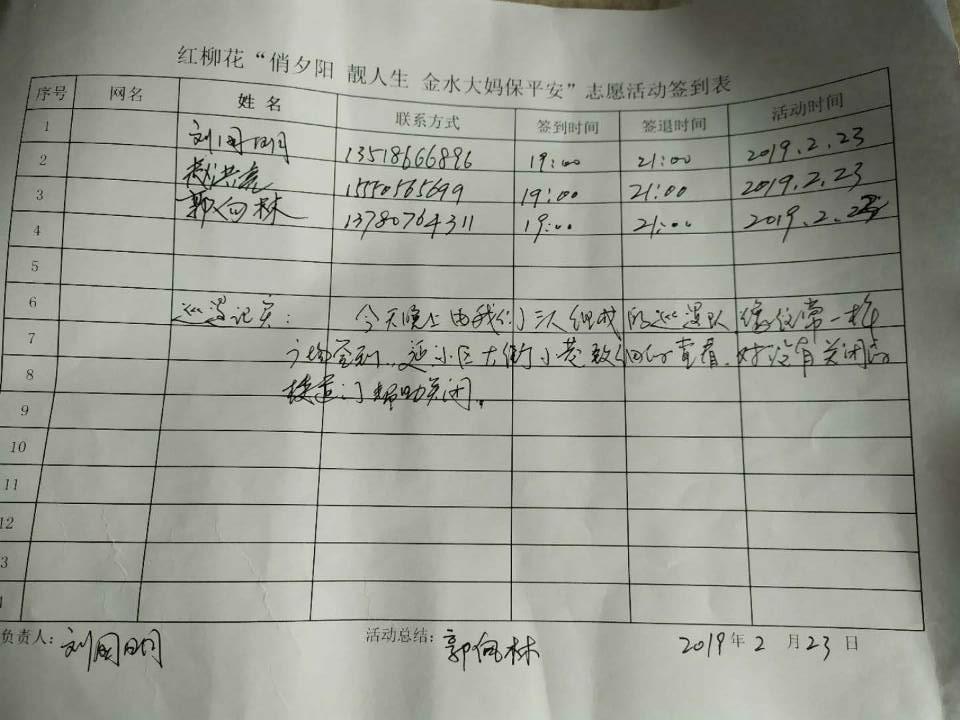 红柳花“俏夕阳 靓人生 金水大妈保平安”志愿活动签到表
序号 网名 姓名 联系方式 签到时间 签退时间 活动时间
1 刘国明 13518666896 19:00 21:00 2019.2.23
2 赵洪亮 19:00 21:00 2019.2.23
3 郭佩林 13780764311 19:00 21:00 2019.2.23
4
5
6 巡逻记实: 今天晚上由我们小三人组成的巡逻队像往常一样
7 小区大街小巷 查看,对没有关闭的
8 楼道门帮助关闭。
9
10
11
12
3
负责人: 刘国明 活动总结: 郭佩林 2019年2月23日